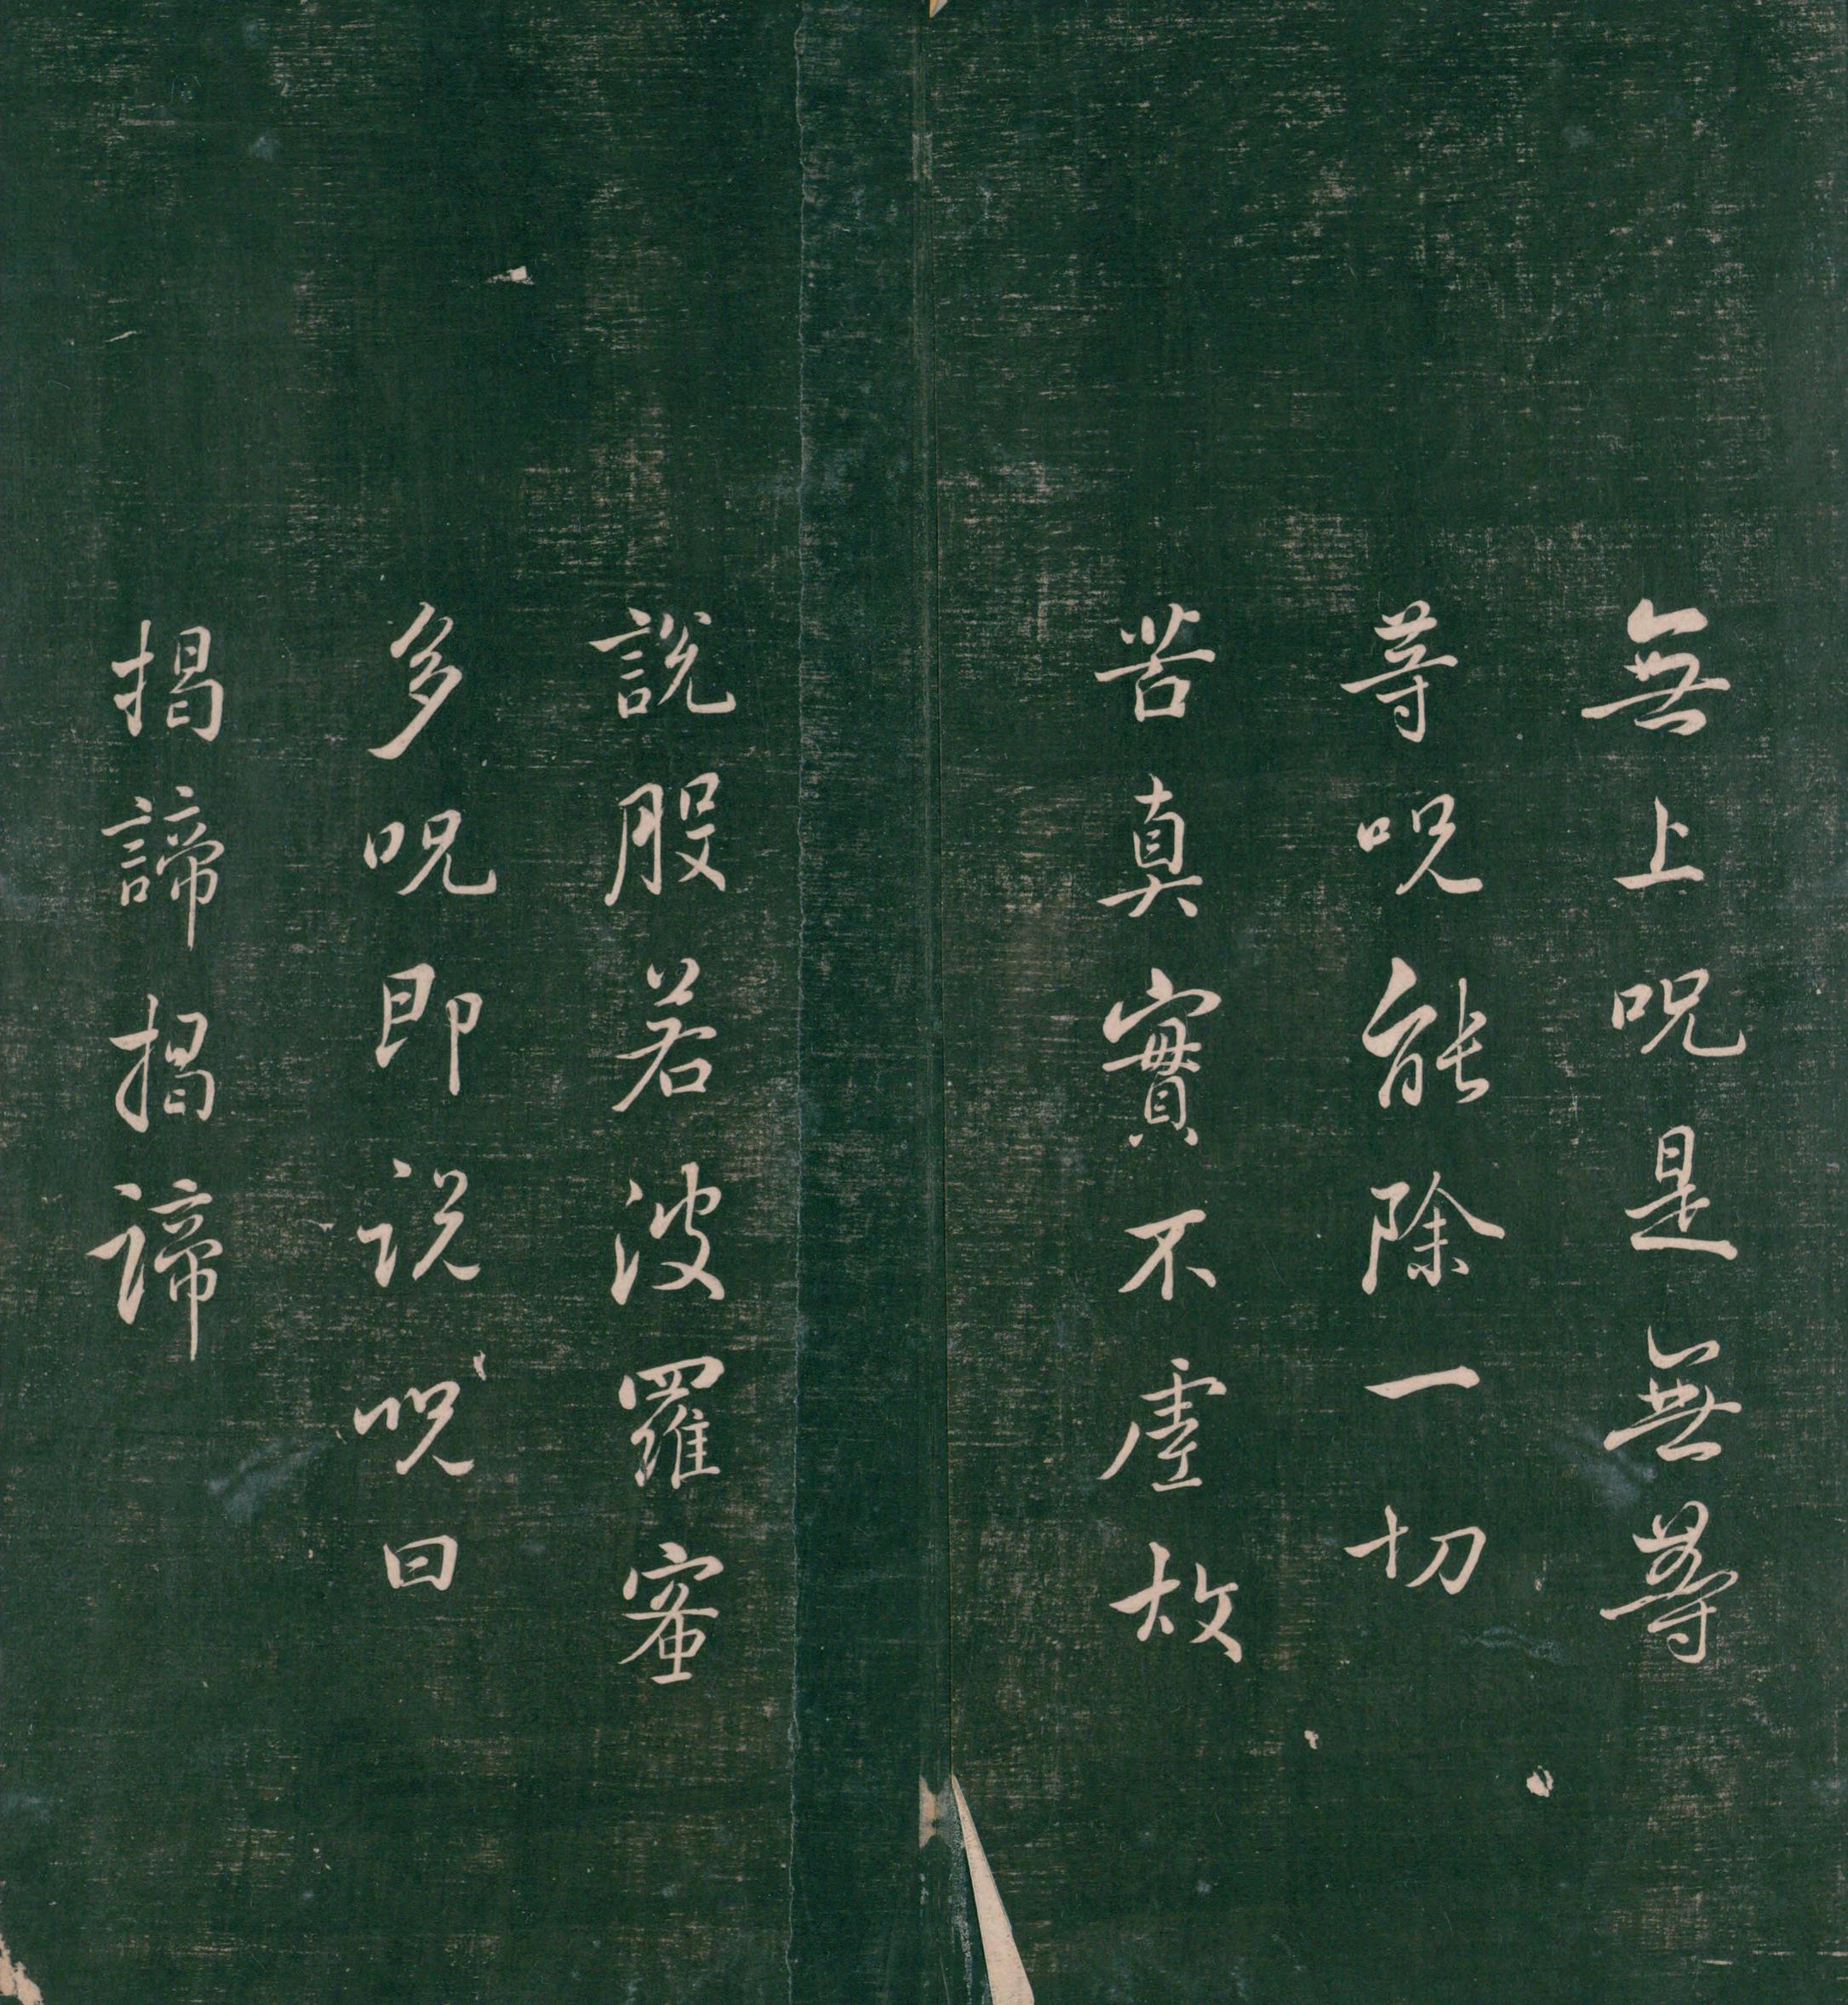 無上呪是無等
等呪能除一切
苦真實不虛故
說般若波羅蜜
多呪即說呪曰
揭諦揭諦